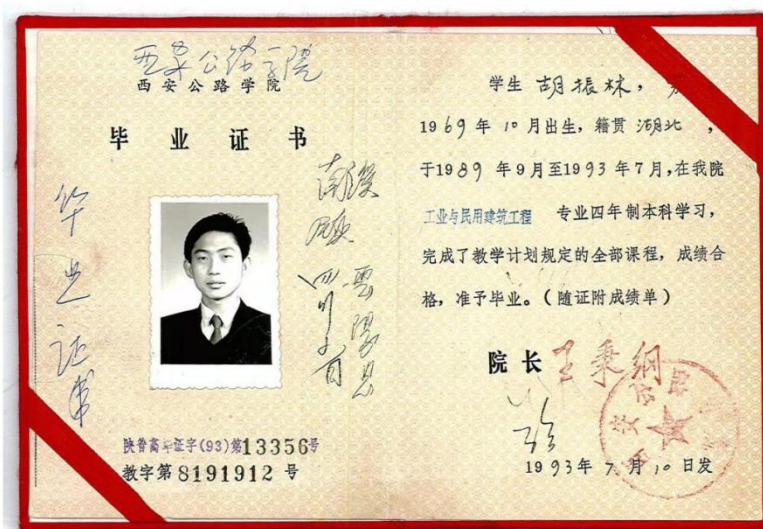 西安公路学院
西安公路学院
毕业证书
毕业证书
四川省
云阳县
陕普高毕证字(93)第13356号
教字第8191912号
学生 胡振林，男
1969年10月出生，籍贯 湖北，
于1989年9月至1993年7月，在我院
工业与民用建筑工程 专业四年制本科学习，
完成了教学计划规定的全部课程，成绩合
格，准予毕业。（随证附成绩单）
院长 王秉纲
1993年7月10日发